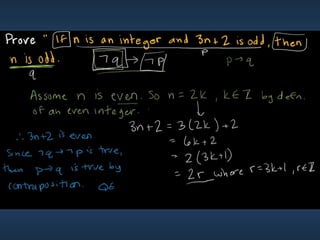 Prove " If n is an integer and 3n+2 is odd, then
n is odd.
p
q
¬q → ¬p
p → q
Assume n is even. So n = 2k, k∈ℤ by defn.
of an even integer.
3n+2 = 3(2k)+2
= 6k+2
= 2(3k+1)
= 2r where r=3k+1, r∈ℤ
∴ 3n+2 is even.
Since ¬q→¬p is true,
then p→q is true by
contraposition. QE